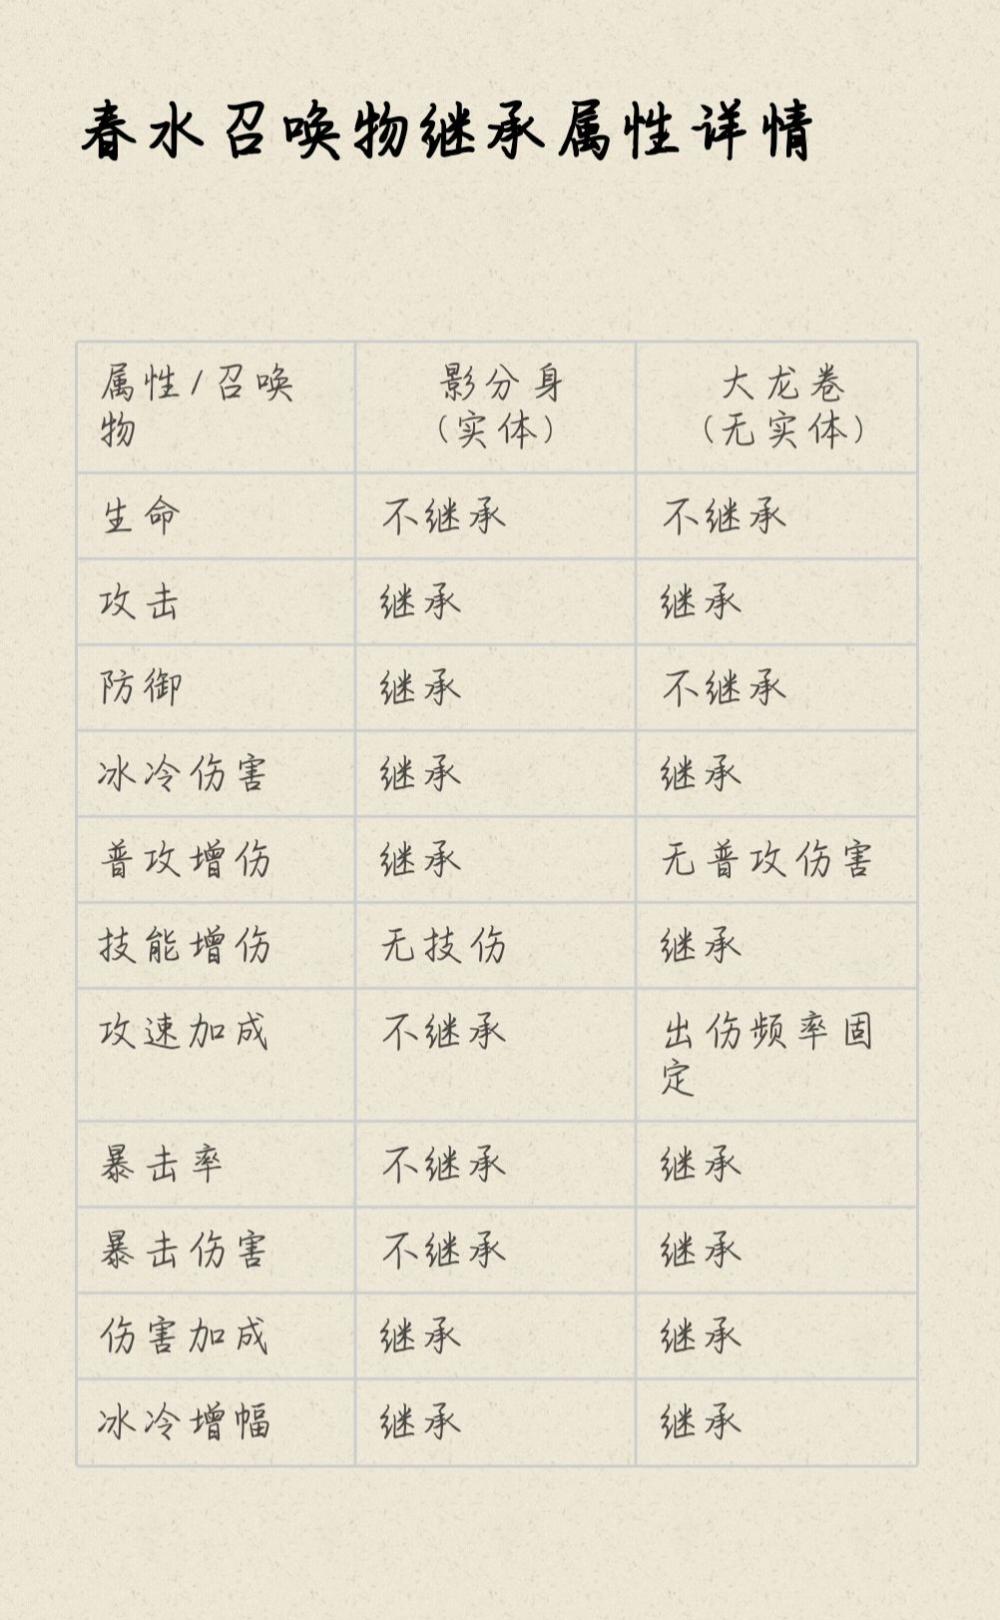 春水召唤物继承属性详情
属性/召唤 影分身 大龙卷
物 (实体) (无实体)
生命 不继承 不继承
攻击 继承 继承
防御 继承 不继承
冰冷伤害 继承 继承
普攻增伤 继承 无普攻伤害
技能增伤 无技伤 继承
攻速加成 不继承 出伤频率固
定
暴击率 不继承 继承
暴击伤害 不继承 继承
伤害加成 继承 继承
冰冷增幅 继承 继承